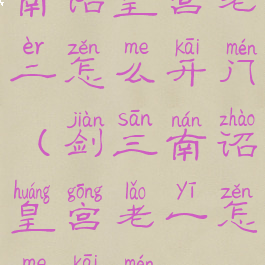 南诏皇宫老
èr zěn me kāi mén
二怎么开门
jiàn sān nán zhào
（剑三南诏
huáng gōng lǎo yī zěn
皇宫老一怎
me kāi mén